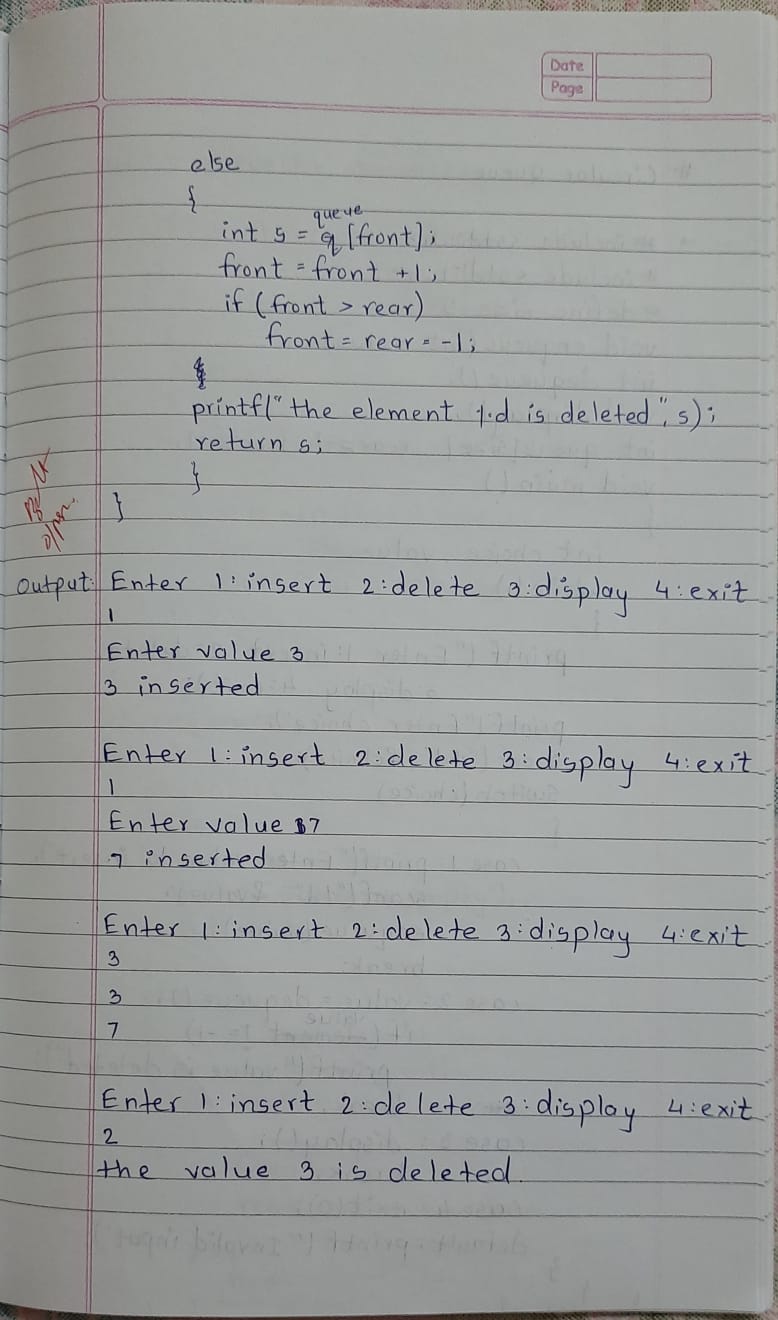 Date
Page
else
{
queue
int s = q [front];
front = front +1;
if (front > rear)
front = rear = -1;
printf("the element %d is deleted", s);
return s;
}
}
Output: Enter 1: insert 2:delete 3:display 4:exit
1
Enter value 3
3 inserted
Enter 1: insert 2:delete 3:display 4:exit
1
Enter value 7
7 inserted
Enter 1: insert 2:delete 3:display 4:exit
3
3
7
Enter 1: insert 2:delete 3:display 4:exit
2
the value 3 is deleted.